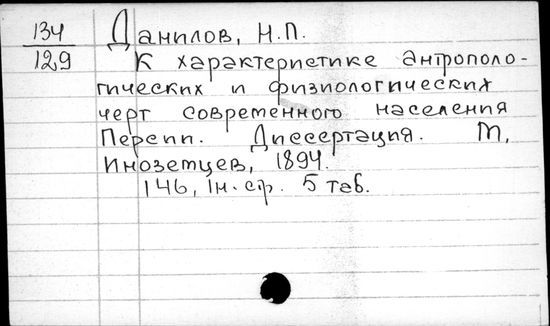 134
129
Данилов, Н.П.
К характеристике антрополо-
гических и физиологических
черт современного населения
Персии. Диссертация. М,
Инозетцев, 1894.
146, Iн. ср. 5 таб.